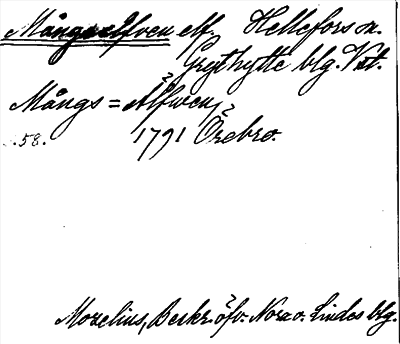 Mångselfven elf, Hellefors sn.
Grythytte blg. Vstm.
Mångs = Älfwen,
s. 58. 1791 Örebro.
Mozelius, Beskr. öfv. Nora o. Lindes blg.